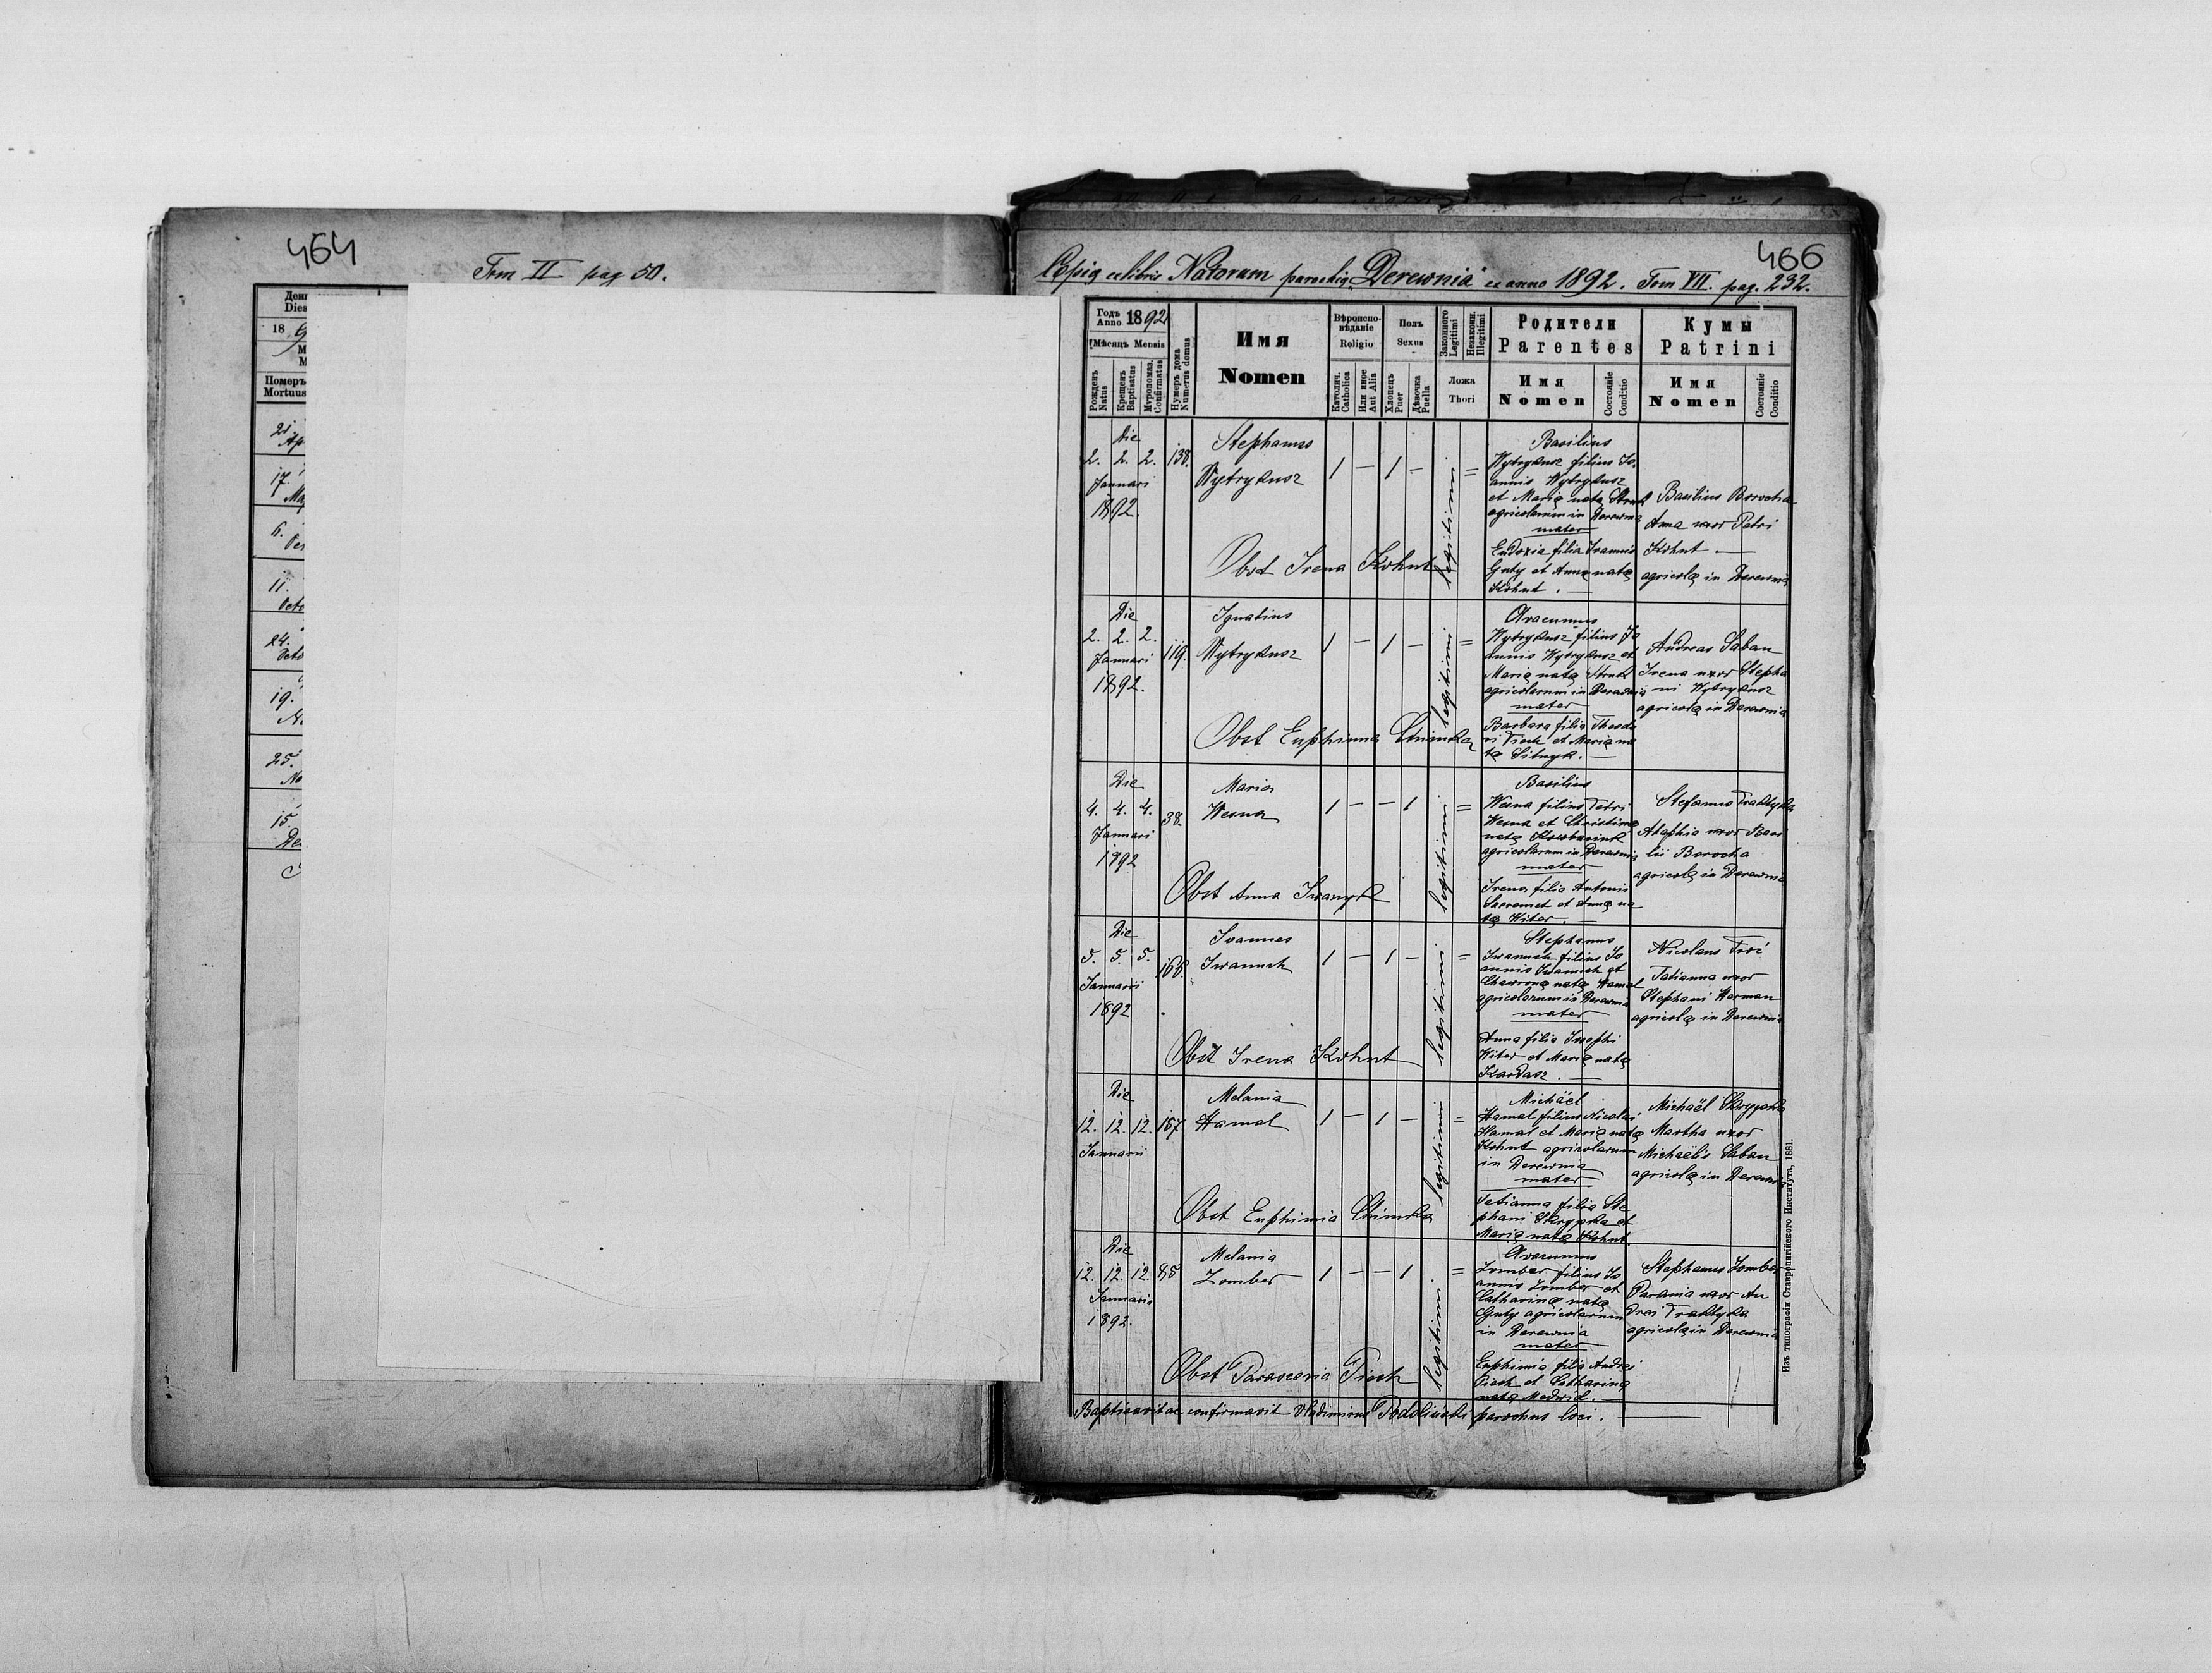 464
Tom II pag 50.
День
Dies
18 9
М
М
Померъ
Mortuus
21.
Ap
17.
Ma
6.
11.
Octo
24.
Octo
19.
N
25.
No
15.
De
466
Copia ex libris Natorum parochię Derewnia ex anno 1892. Tom VII. pag. 232.
Годъ Anno 1892
Мѣсяцъ Mensis
Рожденъ Natus
Крещенъ Baptisatus
Мѵропомаз. Confirmatus
Нумеръ дома Numerus domus
Имя
Nomen
Вѣроиспо-
вѣданіе
Religio
Католич. Catholica
Или иное Aut Alia
Полъ
Sexus
Хлопецъ Puer
Дѣвочка Puella
Законного Legitimi
Незаконн. Illegitimi
Ложа
Thori
Родители
Parentes
Имя
Nomen
Состояніе
Conditio
Кумы
Patrini
Имя
Nomen
Состояніе
Conditio
Die
2. 2. 2.
Januari
1892.
138.
Stephanus
Wytrykusz
1 — 1 —
legitimi
=
Basilius
Wytrykusz filius Jo
annis Wytrykusz
et Marię natę
agricolarum in Derewnia
mater
Eudoxia filia Ioannis
Gnty et Annę natę
Kohnt . —
Basilius Borocha
Anna uxor Petri
Kohnt —
agricolę in Derewnia
Obst Irena Kohnt
Die
2. 2. 2.
Januari
1892.
119.
Ignatius
Wytrykusz
1 — 1 —
legitimi
=
Avacumus
Wytrykusz filius Jo
annis Wytrykusz et
Marię natę
agricolarum in Derewnia
mater
Barbara filia Theodo
ri Piech et Marię na
tę Sitnyk. —
Andreas Saban
Irena uxor Stepha
ni Wytrykusz
agricolę in Derewnia
Obst Euphimia
Die
4. 4. 4.
Januari
1892
38.
Maria
Wesna
1 — — 1
legitimi
=
Basilius
Wesna filius Petri
Wesna et Christinę
natę
agricolarum in Derewnia
mater
Irena filia Antonii
et Annę na
tę Witer. —
Stefanus Traktyka
Ahaphia uxor Basi
lii Borocha
agricolę in Derewnia
Obst Anna Iwanyk
Die
5. 5. 5.
Januarii
1892
168.
Ioannes
Iwanuch
1 — 1 —
legitimi
=
Stephanus
Iwanuch filius Jo
annis Iwanuch et
natę Hamal
agricolarum in Derewnia
mater
Anna filia Iosephi
Witer et Marię natę
Kardasz. —
Nicolaus
Tatianna uxor
Stephani Herman
agricolę in Derewnia
Obst Irena Kohnt
Die
12. 12. 12.
Januarii
157
Melania
Hamal
1 — 1 —
legitimi
=
Michaël
Hamal filius Nicolai
Hamal et Marię natę
Kohnt agricolarum
in Derewnia
mater
Tatianna filia Ste
phani Skrypka et
Marię natę Kohnt.
Michaël Skrypka
Martha uxor
Michaëlis Saban
agricolę in Derewnia
Obst Euphimia
Die
12. 12. 12.
Januarii
1892.
85
Melania
Zomber
1 — — 1
legitimi.
=
Avacumus
Zomber filius Jo
annis Zomber et
Catharinę natę
Gnty agricolarum
in Derewnia
mater
Euphimia filia Andrei
Piech et Catharinę
natę Medwid. —
Stephanus Zomber
Parania uxor An
drei Traktyka
agricolę in Derewnia
Obst Parascevia Piech
Baptisavit ac confirmavit Vladimirus Podoliński parochus loci.
Изъ типографіи Ставропигійского Института, 1881.